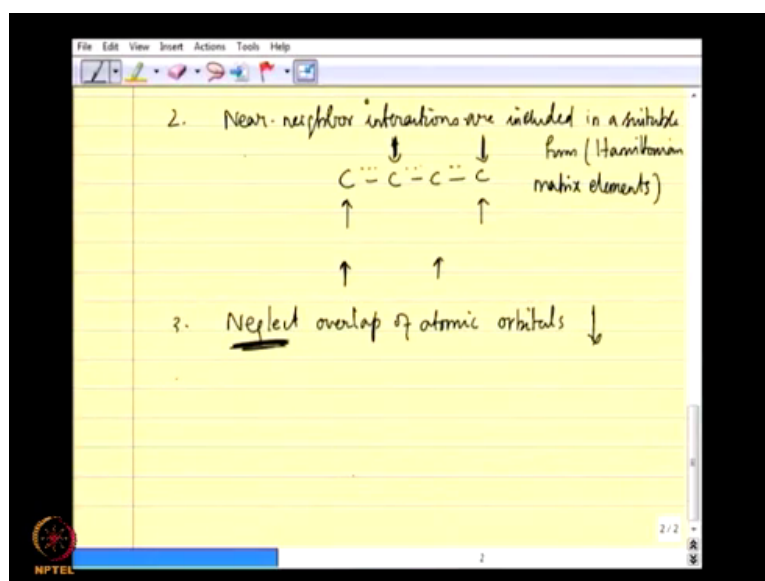 File Edit View Insert Actions Tools Help
2. Near-neighbor interactions are included in a suitable
form (Hamiltonian
C C C C matrix elements)
3. Neglect overlap of atomic orbitals
2/2
2
NPTEL